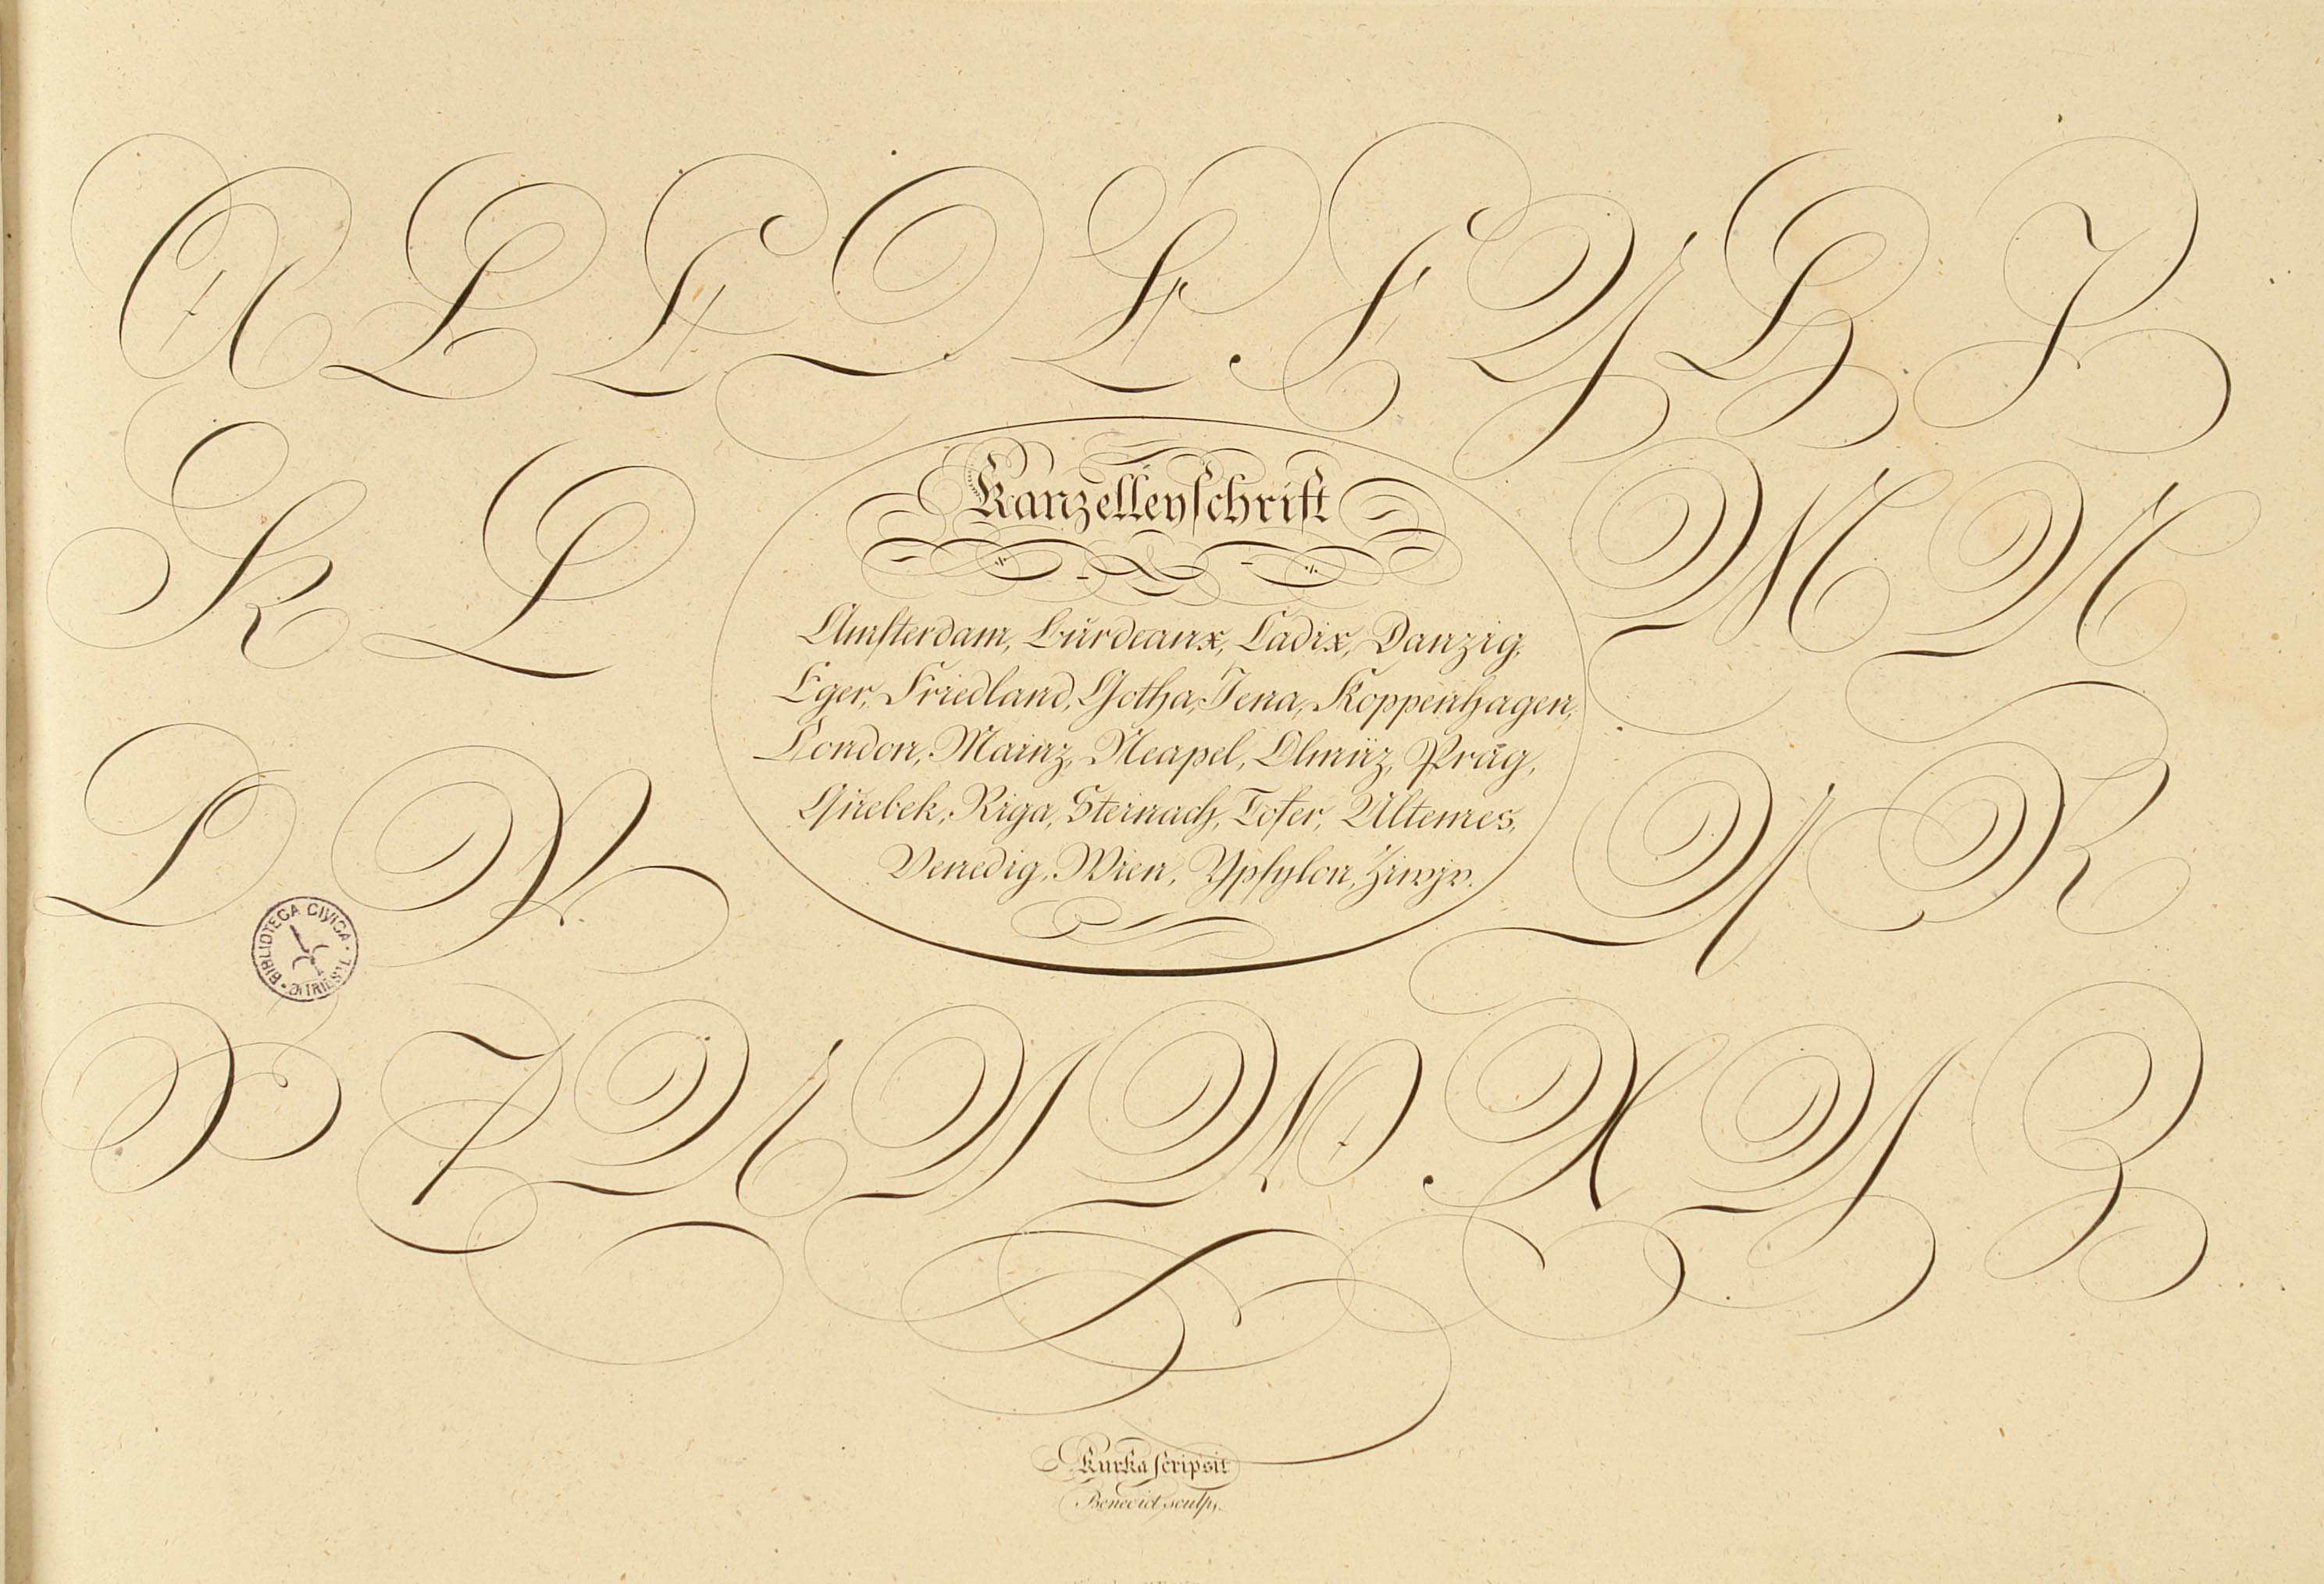 A B C D E F G H J
Kanzelleyſchrift
K L M N
Amſterdam, Burdeaux, Cadix, Danzig,
Eger, Friedland, Gotha, Jena, Koppenhagen,
London, Mainz, Neapel, Olmüz, Prag,
P Q R
Quebek, Riga, Steinach, Tofer, Ultemes,
Venedig, Wien, Ypſylon,
BIBLIOTECA CIVICA · DI TRIESTE ·
U V W X Y Z
Kurka ſcripsit
Benedict sculps.